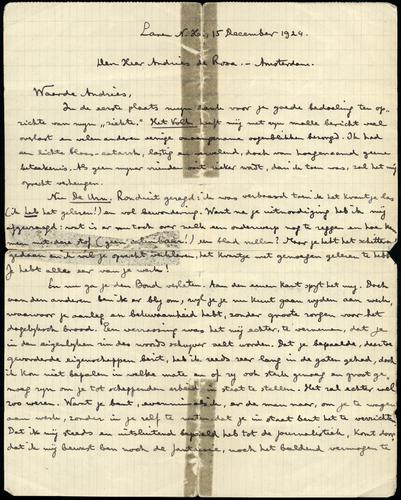 Laren N.H., 15 December 1924.
Den Heer Andries de Rosa. — Amsterdam.
Waarde Andries,
In de eerste plaats mijn dank voor je goede bedoeling ten op-
zichte van mijn "ziekte". Het Volk heeft mij met zijn malle bericht veel
overlast en velen anderen eenige onaangename oogenblikken bezorgd. Ik had
een lichte blaas-catarrh, lastig en vervelend, doch van hoegenaamd geene
beteekenis. Als geen mijner vrienden ooit zieker wordt, dan ik toen was, zal het mij
oprecht verheugen.
Nu De Urn. Ronduit gezegd: ik was verbaasd toen ik het krantje las
(ik heb het gelezen!) en vol bewondering. Want na je uitnoodiging heb ik mij
afgevraagd: wat is er van toch over zulk een onderwerp nog te zeggen en hoe kan
men met deze stof (geen) een blad vullen? Maar je hebt het schitterend
gedaan en ik wil je oprecht verklaren, het krantje met genoegen gelezen te hebben.
Je hebt alles eer van je werk!
En nu ga je den Bond verlaten. Aan den eenen kant spijt het mij. Doch
van den anderen ben ik er blij om, wijl je je nu kunt gaan wijden aan werk,
waarvoor je aanleg en bekwaamheid hebt, zonder groote zorgen voor het
dagelijksch brood. Een verrassing was het mij echter, te vernemen, dat je
in den eigenlijken zin des woords schrijver zult worden. Dat je bepaalde, deerste
gevorderde eigenschappen bezit, heb ik reeds zeer lang in de gaten gehad, doch
ik kon niet bepalen in welke mate en of zij ook sterk genoeg en groot ge-
noeg zijn om je tot scheppenden arbeid in staat te stellen. Het zal echter wel
zoo wezen. Want je bent, evenmin als ik daar de man naar, om je te wagen
aan werk, zonder in je zelf te weten, dat je in staat bent het te verrichten.
Dat ik mij steeds en uitsluitend bepaald heb tot de journalistiek, komt door-
dat ik mij bewust ben noch de fantaisie, noch het beeldend vermogen te